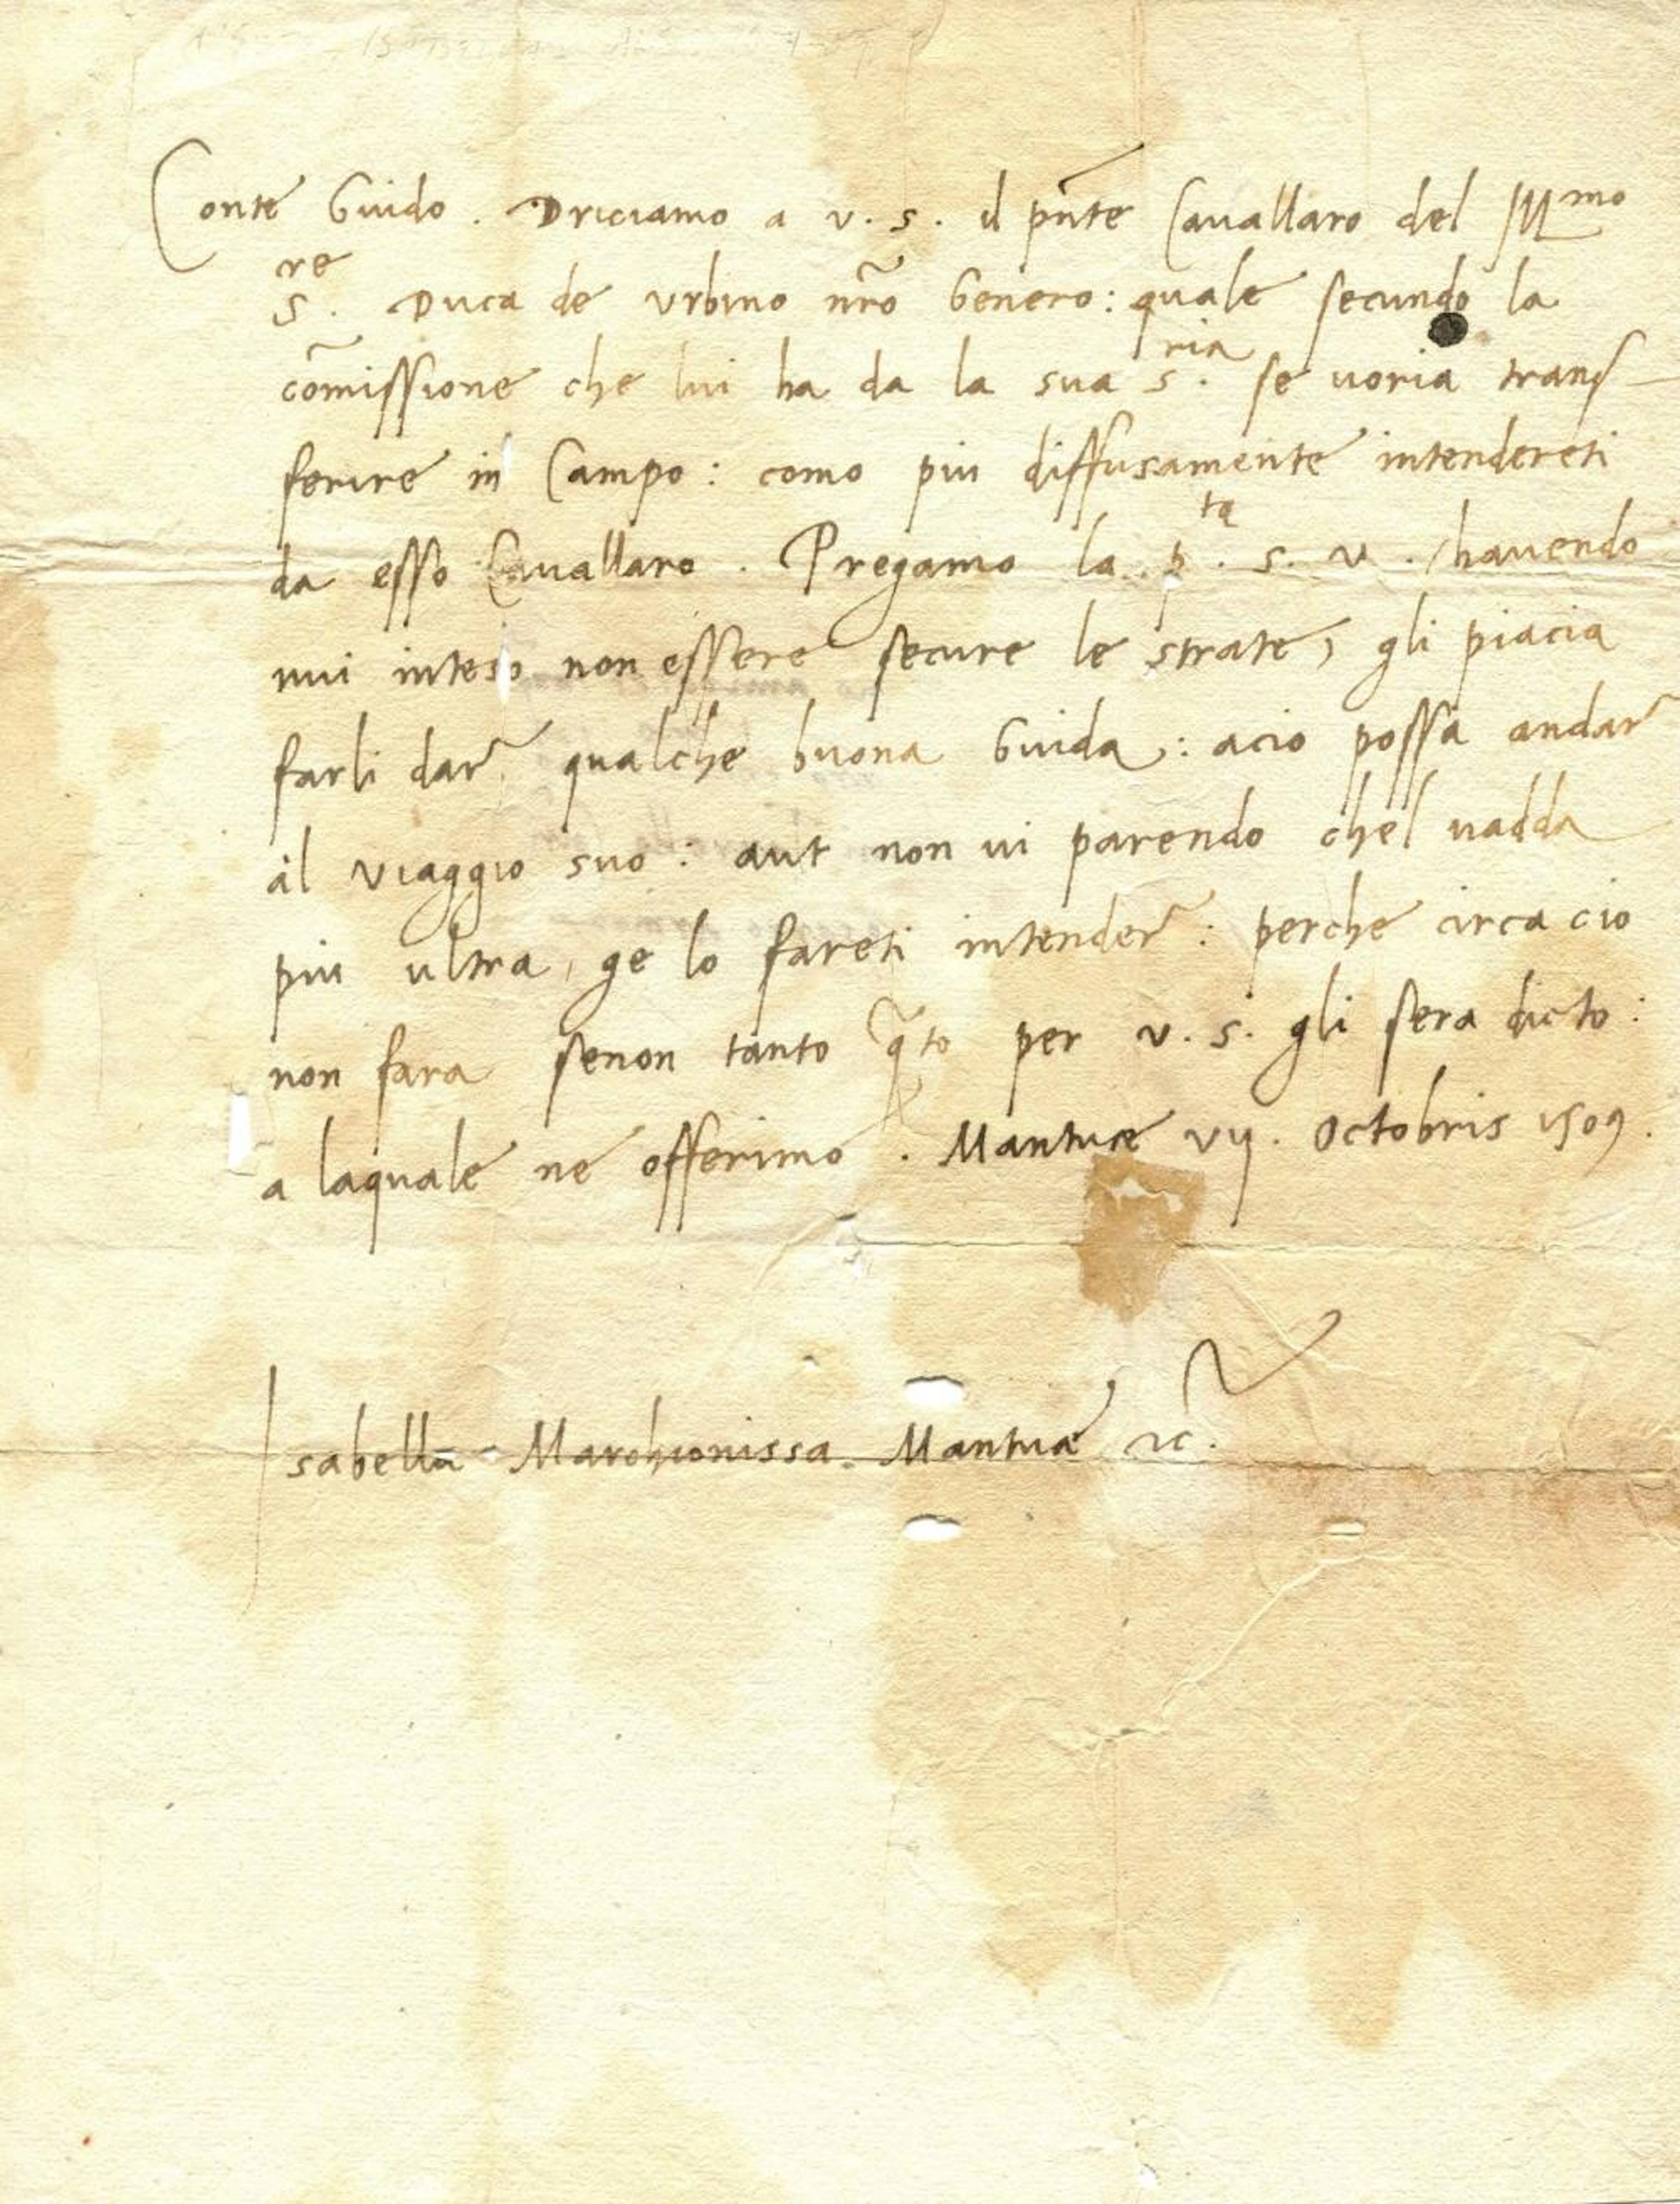 Conte Guido. Driciamo a v. s. il pñte Cavallaro del Illmo
Sre. Duca de Urbino nr̃o Genero: quale secundo la
com̃issione che lui ha da la sua S.ria se uoria transf-
ferire in Campo: como piu diffusamente intendereti
da esso Cavallaro. Pregamo la p.ta s. v. / havendo
nui inteso non essere secure le strate, gli piacia
farli dar̃ qualche buona Guida: acio possa andar̃
al viaggio suo: aut non ui parendo chel uadda
piu ultra, ge lo fareti intender̃: perche circa cio
non fara senon tanto q̃to per v. s. gli sera dicto:
a laquale ne offerimo. Mantuae vij. Octobris 1509.
Isabella Marchionissa Mantuae &c.